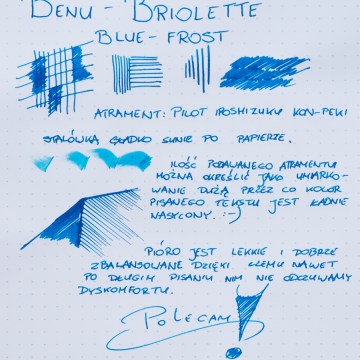 BENU - BRIOLETTE
BLUE-FROST
ATRAMENT: PILOT IROSHIZUKU KON-PEKI
STALÓWKA GŁADKO SUNIE PO PAPIERZE.
ILOŚĆ PODAWANEGO ATRAMENTU
MOŻNA OKREŚLIĆ JAKO UMIARKO-
WANIE DUŻĄ PRZEZ CO KOLOR
PISANEGO TEKSTU JEST ŁADNIE
NASYCONY. :-)
PIÓRO JEST LEKKIE I DOBRZE
ZBALANSOWANE DZIĘKI CZEMU NAWET
PO DŁUGIM PISANIU NIM NIE ODCZUWAMY
DYSKOMFORTU.
POLECAM!